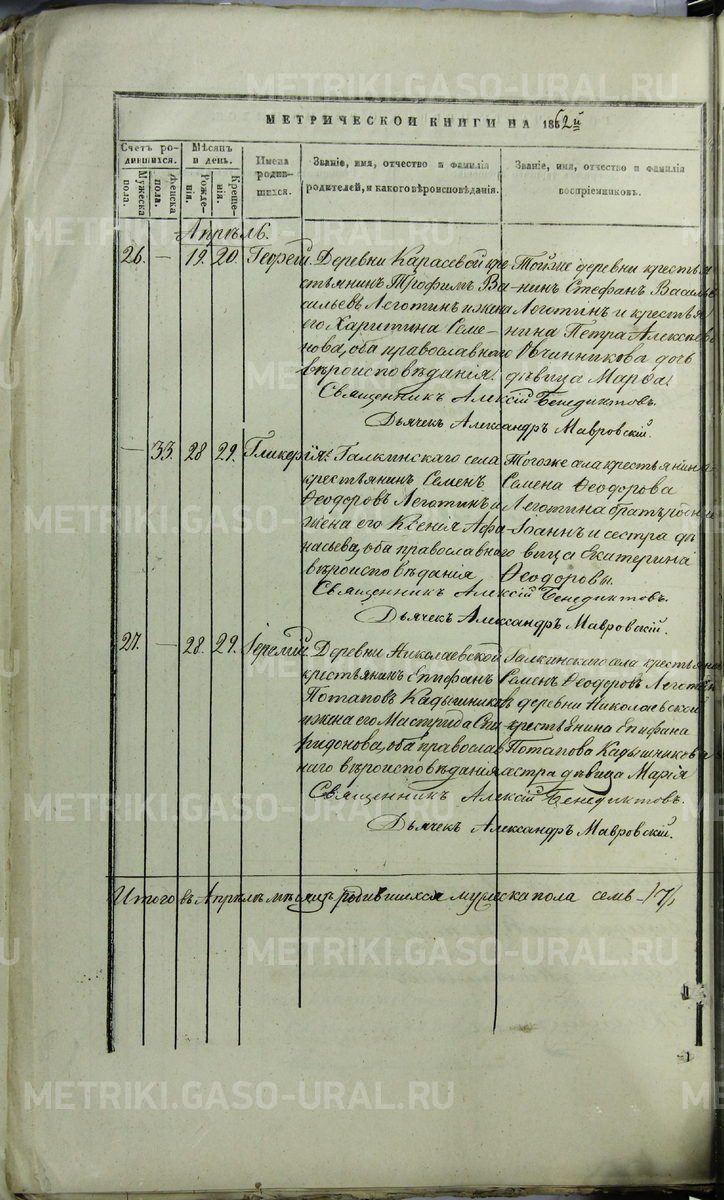 METRIKI.GASO-URAL.RU
МЕТРИЧЕСКОЙ КНИГИ НА 1862й
Счетъ ро-
дившихся.
Мужеска
пола.
Женска
пола.
Мѣсяцъ
и день.
Рожде-
нія.
Креще-
нія.
Имена
родив-
шихся.
Званіе, имя, отчество и фамилія
родителей, и какого вѣроисповѣданія.
Званіе, имя, отчество и фамилія
воспріемниковъ.
Апрѣль.
26. — 19. 20. Георгій.
Деревни Карасевой кре-
стьянинъ Трофимъ Ва-
сильевъ Леготинъ и жена
его Харитина Семе-
нова, оба православнаго
вѣроисповѣданія.
Тойже деревни крестья-
нинъ Стефанъ Василь
Леготинъ и крестья
нина Петра Алексѣев
Овчинникова дочь
дѣвица Марѳа.
Священникъ Алексій Бенедиктовъ.
Дьячекъ Александръ Мавровскій.
— 33. 28 29. Гликерія.
Галкинскаго села
крестьянинъ Семенъ
Ѳеодоровъ Леготинъ и
жена его Ксенія Афа-
насьева, оба православнаго
вѣроисповѣданія
Тогоже села крестьянина
Семена Ѳеодорова
Леготина братъ родн
Іоаннъ и сестра дѣ
вица Екатерина
Ѳеодоровы.
Священникъ Алексій Бенедиктовъ.
Дьячекъ Александръ Мавровскій.
27. — 28. 29. Іеремій.
Деревни Николаевской
крестьянинъ Епифанъ
Потаповъ Кадышниковъ
и жена его Мастридія Спи
ридонова, оба православ
наго вѣроисповѣданія
Галкинскаго села крестьянин
Семенъ Ѳеодоровъ Леготин
деревни Николаевской
крестьянина Епифана
Потапова Кадышникова
сестра дѣвица Марія
Священникъ Алексій Бенедиктовъ.
Дьячекъ Александръ Мавровскій.
Итого въ Апрѣлѣ мѣсяцѣ родившихся мужеска пола семь /7/